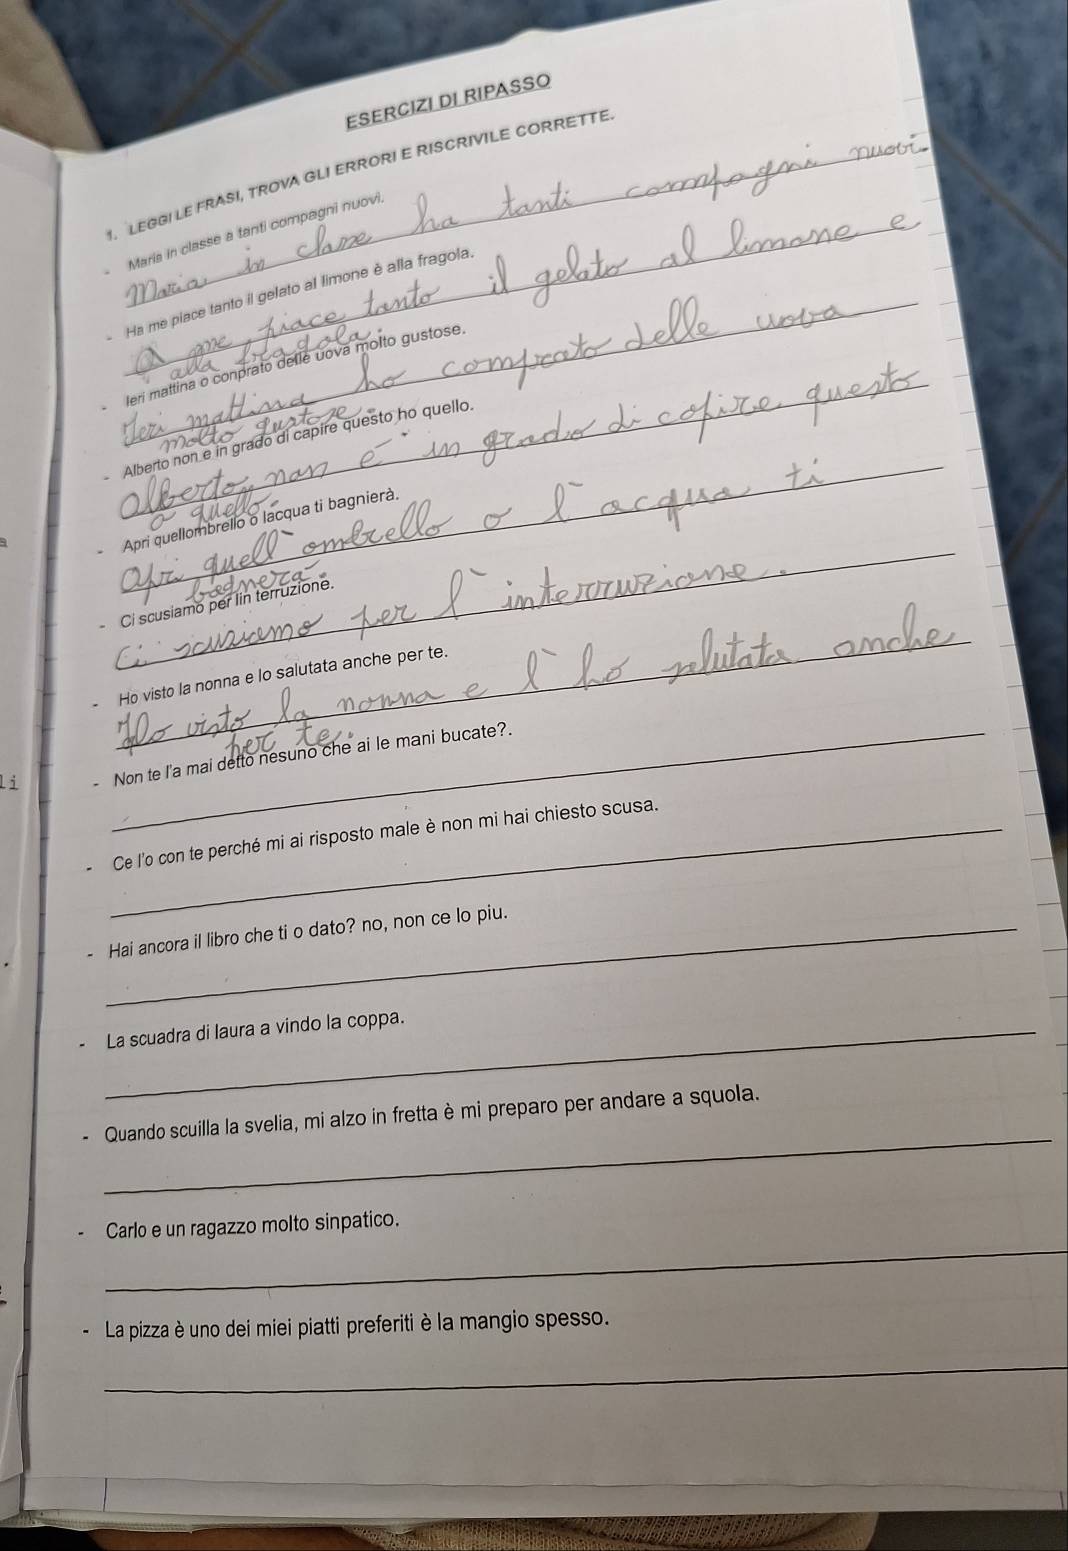 ESERCIZI DI RIPASSO
1. LEGGI LE FRASI, TROVA GLI ERRORI E RISCRIVILE CORRETTE.
- Maria in classe a tanti compagni nuovi.
Maria in classe ha tanti compagni nuovi.
- Ha me piace tanto il gelato al limone è alla fragola.
A me piace tanto il gelato al limone e
alla fragola.
- Ieri mattina o conprato delle uova molto gustose.
Ieri mattina ho comprato delle uova
molto gustose.
- Alberto non e in grado di capire questo ho quello.
Alberto non è in grado di capire questo
o quello.
- Apri quellombrello o lacqua ti bagnierà.
Apri quell'ombrello o l'acqua ti
bagnera
- Ci scusiamo per lin terruzione.
Ci scusiamo per l'interruzione.
- Ho visto la nonna e lo salutata anche per te.
Ho visto la nonna e l'ho salutata anche
per te.
- Non te l'a mai detto nesuno che ai le mani bucate?.
- Ce l'o con te perché mi ai risposto male è non mi hai chiesto scusa.
- Hai ancora il libro che ti o dato? no, non ce lo piu.
- La scuadra di laura a vindo la coppa.
- Quando scuilla la svelia, mi alzo in fretta è mi preparo per andare a squola.
- Carlo e un ragazzo molto sinpatico.
- La pizza è uno dei miei piatti preferiti è la mangio spesso.